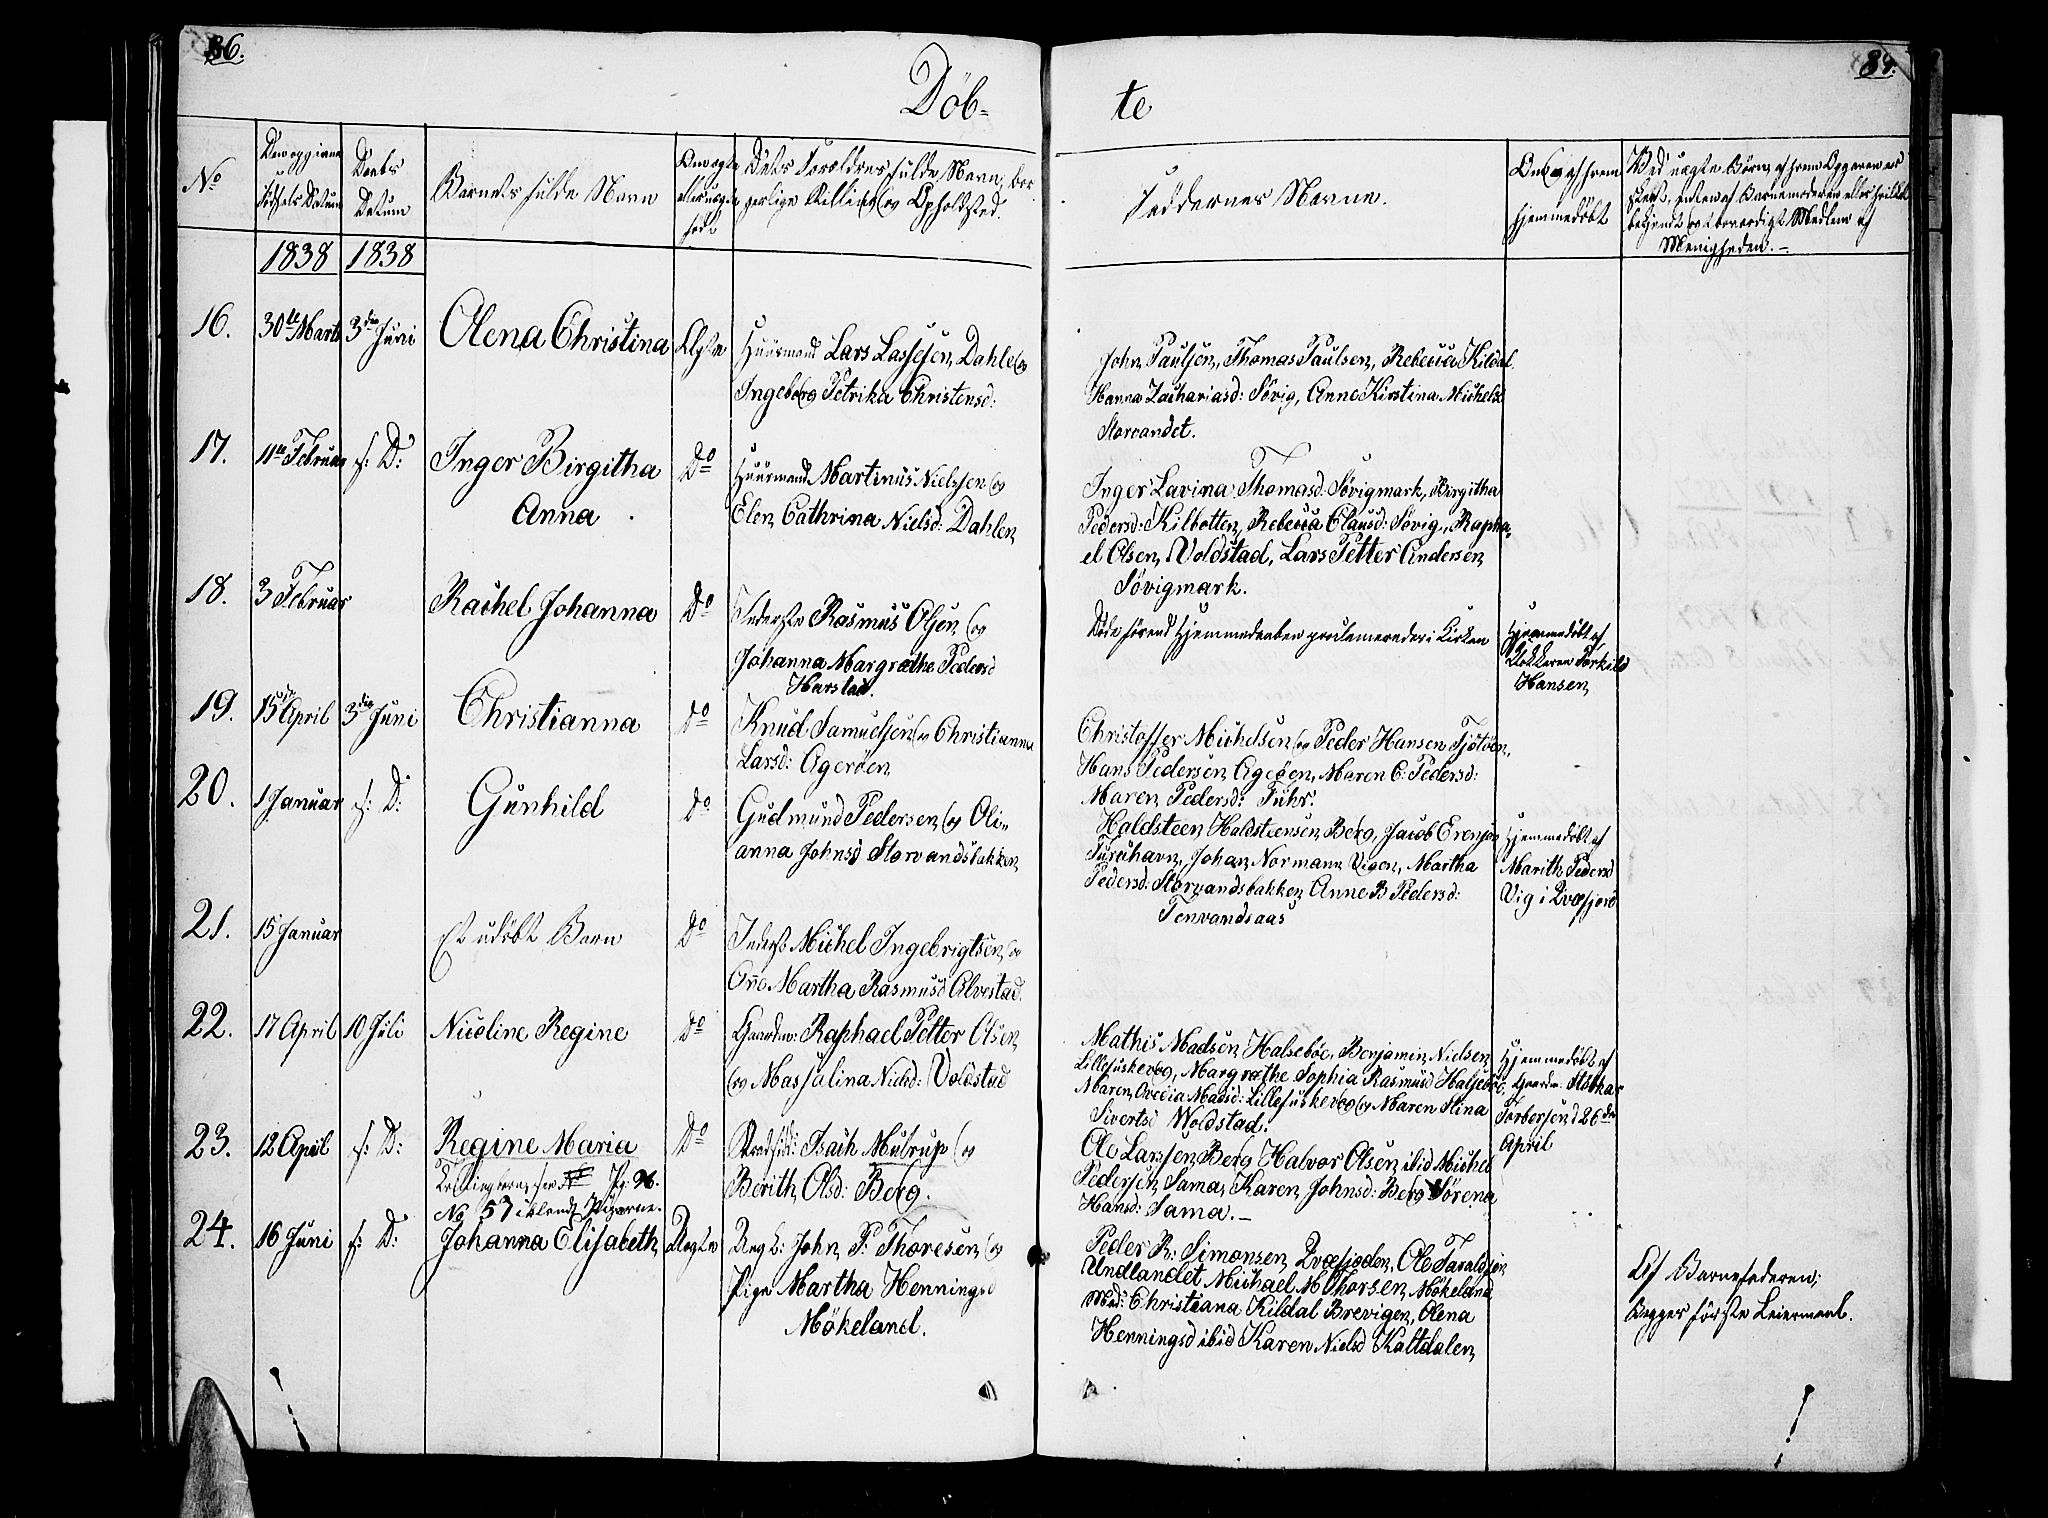 86.
87.
Döb-
te
No
Den opgivne
Födsels Datum
Daabs
Datum
Barnets fulde Navn
Om ægte
eller uægte
född
Dets Forældres fulde Navn, bor
gerlige Stilling og Opholdsted.
Faddernes Navne.
Om og af hvem
hjemmedöbt
Ved uægte Börn, af hvem Opgaven er
skeet, enten af Barnemoderen eller hvilket
bekjendt og troværdigt Medlem af
Menigheden.-
1838
1838
16.
30te Marts
3die Juni
Olena Christina
Ægte
Huusmand Lars Lassesen Dahle og
Ingeborg Petrika Christensd:
John Paulsen, Thomas Paulsen, Rebecca Kildal
Hanna Zachariasd: Sövig, Anne Kirstina Michelsd
Storvandet.
17.
11te Februar
s: D:
Inger Birgitha
Anna
Do
Huusmand Martinus Nielssen og
Elen Cathrina Nielsd: Dahlen
Inger Lavina Thomasd Sövigmark, Birgitha
Pedersd: Kilbotten, Rebecca Clausd: Sövig, Rapha-
el Olsen Voldstad, Lars Petter Andersen
Sövigmark.
18.
3 Februar
Rachel Johanna
Do
Inderste Rasmus Olsen og
Johanna Margrethe Pedersd
Harstad.
Döde förend Hjemmedaaben proclameredes i Kirken
Hjemmedöbt af
Klokkeren Torkild
Hansen
19.
15de April
3die Juni
Christianna
Do
Knud Samuelsen og Christianna
Larsd: Ageröen
Christoffer Michelsen og Peder Hansen Tjötöen,
Hans Pedersen Ageöen, Maren C: Pedersd:
Maren Pedersd: Fuhr.
20.
1 Januar
s: D:
Gunhild
Do
Gudmund Pedersen og Oli-
anna Johnsd Storvandsbakken
Haldsteen Haldsteensen Berg, Jacob Erensen
Furuhavn, Johan Normann Vigen, Martha
Pedersd: Storvandsbakken Anne B Pedersd:
Tenvandsaas
Hjemmedöbt af
Marith Pedersd
Vig i Qvæfjord
21.
15 Januar
Et udöbt Barn
Do
Inderst Michel Ingebrigtsen og
One Martha Rasmusd Alvestad.
22.
17 April
10 Juli
Nicoline Regine
Do
Gaardm: Raphael Petter Olsen
og Massalina Nielsd: Voldstad
Mathis Madsen Halseböe, Benjamin Nielsen
Lillefuskevog, Margrethe Sophia Rasmusd Halseböe,
Maren Ovedia Madsd: Lillefuskevog og Maren Stina
Sivertsd Woldstad.
Hjemmedöbt af
Gaardm:
Torbersen d 26de
April
23.
12 April
s: D:
Regine Maria
Tvillingbarn, see Pg: 96.
No 57 iblandt Pigerne.
Do
Isach Mutrup og
Berith Olsd: Berg.
Ole Larssen Berg Halvor Olsen ibid Michel
Pedersen Sama, Karen Johnsd: Berg Sörena
Hansd: Sama.-
24.
16 Juni
s: D:
Johanna Elisabeth
Uægte
Ung K: John P: Thoresen og
Pige Martha Henningsd
Mökeland.
Peder R: Simonsen Qvæfjorden, Ole Taraldsen
Undlandet Michael M Thorsen Mökeland
Mad: Christiana Kildal Brevigen, Olena
Henningsd ibid Karen Nielsd Kaltdalen
Af Barnefaderen;
Begges förste Leiermaal.